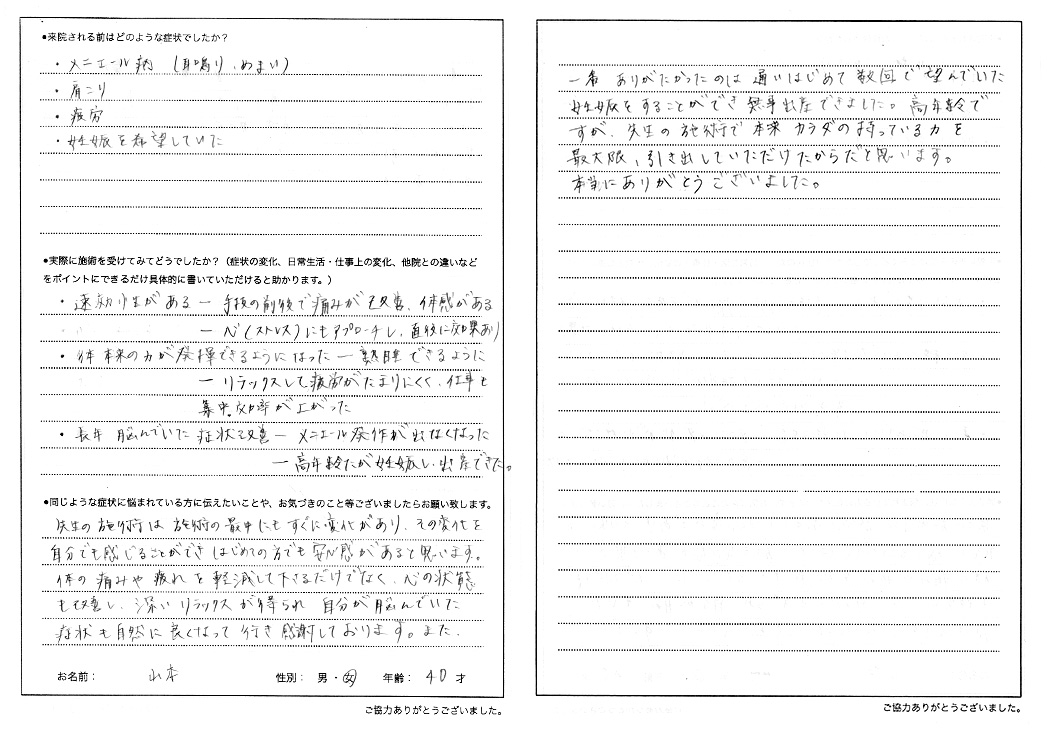 ●来院される前はどのような症状でしたか？
・メニエール病（耳鳴り、めまい）
・肩こり
・疲労
・妊娠を希望していた
●実際に施術を受けてみてどうでしたか？（症状の変化、日常生活・仕事上の変化、他院との違いなど
をポイントにできるだけ具体的に書いていただけると助かります。）
・速効性がある ー 手技の前後で痛みが改善、体感がある
ー 心（ストレス）にもアプローチし、直後に効果あり
・体本来の力が発揮できるようになった ー 熟睡できるように
ー リラックスして疲労がたまりにくく、仕事も
集中、効率が上がった
・長年 悩んでいた 症状改善 ー メニエール発作が出なくなった
ー 高年齢だが妊娠し、出産できた。
●同じような症状に悩まれている方に伝えたいことや、お気づきのこと等ございましたらお願い致します。
先生の施術は 施術の最中にも すぐに変化があり、その変化を
自分でも感じることができ はじめての方でも安心感があると思います。
体の 痛みや 疲れを 軽減して下さるだけでなく、心の状態
も改善し、深い リラックスが得られ 自分が悩んでいた
症状も自然に 良くなって 行き 感謝しております。また、
お名前： 山本 性別： 男・女 年齢： 40 才
ご協力ありがとうございました。
一番 ありがたかったのは 通いはじめて 数回で 望んでいた
妊娠をすることができ 無事出産できました。高年齢で
すが、先生の施術で 本来 カラダの持っている力を
最大限、引き出していただけたからだと思います。
本当にありがとうございました。
ご協力ありがとうございました。